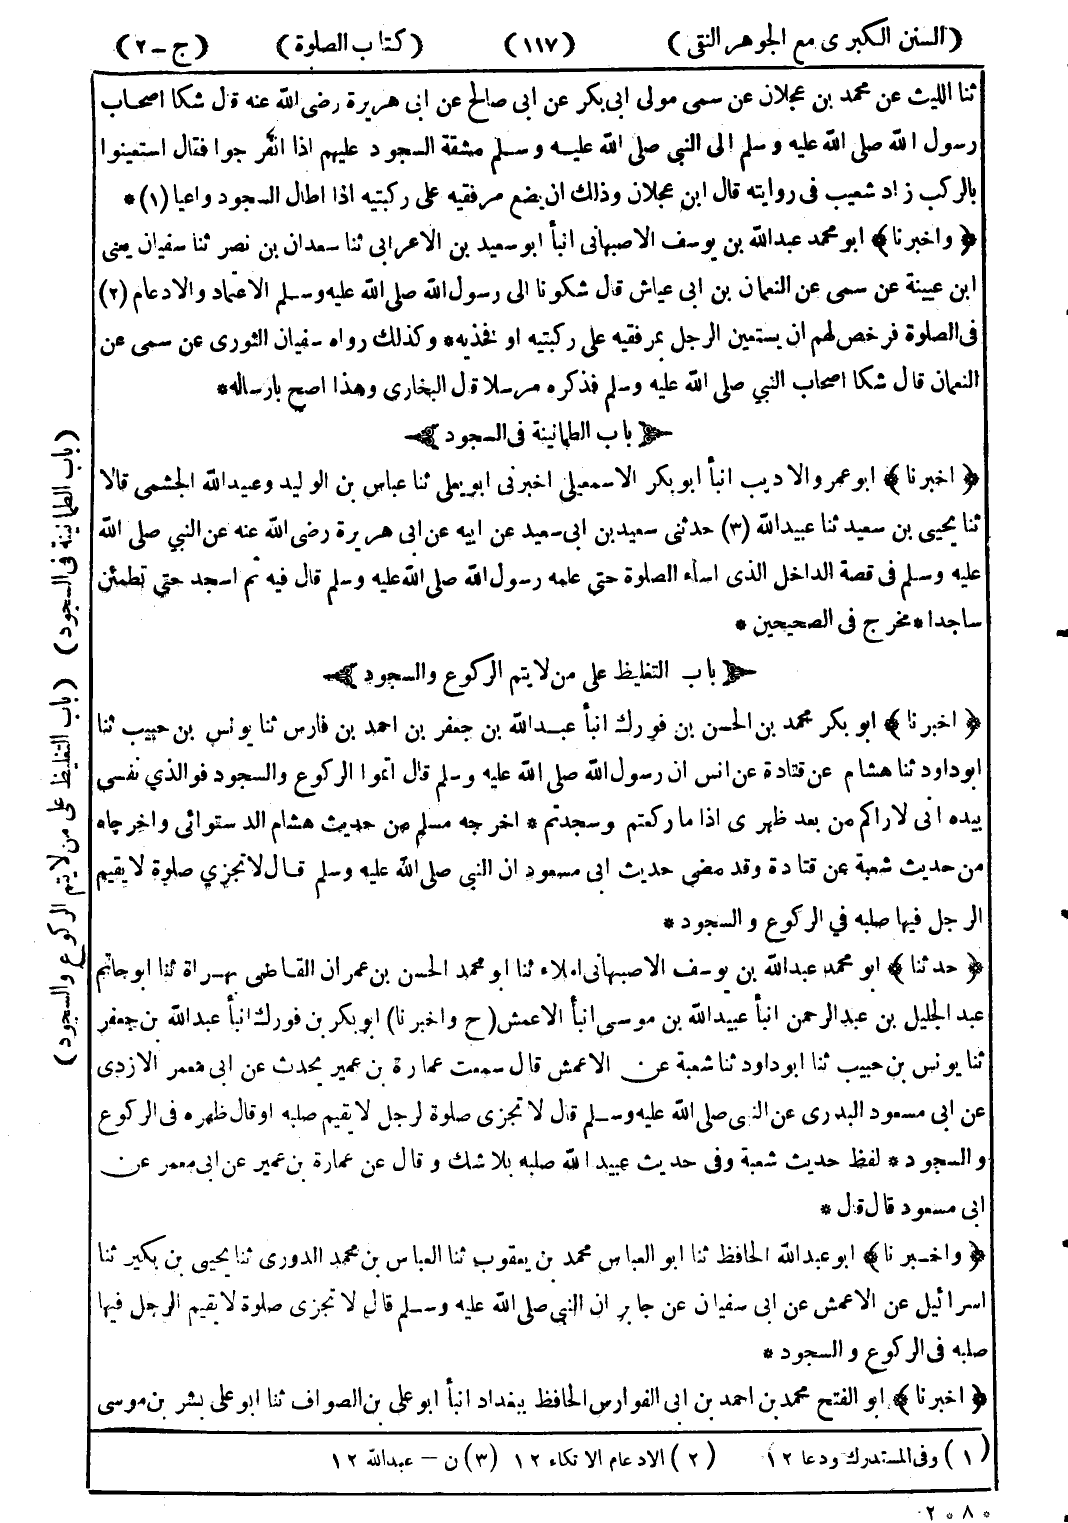 (السنن الكبرى مع الجوهر النقى) (١١٧) (كتاب الصلوة) (ج-٢)
ثنا الليث عن محمد بن عجلان عن سمى مولى ابى بكر عن ابى صالح عن ابى هريرة رضى الله عنه قال شكا اصحاب
رسول الله صلى الله عليه وسلم الى النبي صلى الله عليه وسلم مشقة السجود عليهم اذا انفرجوا فقال استعينوا
بالركب زاد شعيب فى روايته قال ابن عجلان وذلك ان يضع مرفقيه على ركبتيه اذا اطال السجود واعيا (١) *
﴿ واخبرنا ﴾ ابو محمد عبدالله بن يوسف الاصبهانى انبأ ابو سعيد بن الاعرابى ثنا سعدان بن نصر ثنا سفيان يعنى
ابن عيينة عن سمى عن النعمان بن ابى عياش قال شكونا الى رسول الله صلى الله عليه وسلم الاعتماد والادعام (٢)
فى الصلوة فرخص لهم ان يستعين الرجل بمرفقيه على ركبتيه او فخذيه * وكذلك رواه سفيان الثورى عن سمى عن
النعمان قال شكا اصحاب النبي صلى الله عليه وسلم فذكره مرسلا قال البخارى وهذا اصح بارساله *
باب الطمانينة فى السجود
﴿ اخبرنا ﴾ ابو عمرو الاديب انبأ ابو بكر الاسمعيلى اخبرنى ابو يعلى ثنا عباس بن الوليد وعبيد الله الجشمى قالا
ثنا يحيى بن سعيد ثنا عبيد الله (٣) حدثنى سعيد بن ابى سعيد عن ابيه عن ابى هريرة رضى الله عنه عن النبي صلى الله
عليه وسلم فى قصة الداخل الذى اساء الصلوة حتى علمه رسول الله صلى الله عليه وسلم قال فيه ثم اسجد حتى تطمئن
ساجدا * مخرج فى الصحيحين *
باب التغليظ على من لا يتم الركوع والسجود
﴿ اخبرنا ﴾ ابو بكر محمد بن الحسن بن فورك انبأ عبد الله بن جعفر بن احمد بن فارس ثنا يونس بن حبيب ثنا
ابو داود ثنا هشام عن قتادة عن انس ان رسول الله صلى الله عليه وسلم قال اتموا الركوع والسجود فوالذي نفسى
بيده انى لاراكم من بعد ظهرى اذا ما ركعتم وسجدتم * اخرجه مسلم من حديث هشام الدستوائى واخرجاه
من حديث شعبة عن قتادة وقد مضى حديث ابى مسعود ان النبي صلى الله عليه وسلم قال لا تجزي صلوة لا يقيم
الرجل فيها صلبه في الركوع والسجود *
﴿ حدثنا ﴾ ابو محمد عبدالله بن يوسف الاصبهانى املاء ثنا ابو محمد الحسن بن عمران القاضى بهراة ثنا ابو حاتم
عبد الجليل بن عبد الرحمن انبأ عبيد الله بن موسى انبأ الاعمش (ح واخبرنا) ابو بكر بن فورك انبأ عبد الله بن جعفر
ثنا يونس بن حبيب ثنا ابو داود ثنا شعبة عن الاعمش قال سمعت عمارة بن عمير يحدث عن ابى معمر الازدى
عن ابى مسعود البدرى عن النبي صلى الله عليه وسلم قال لا تجزى صلوة لرجل لا يقيم صلبه او قال ظهره فى الركوع
والسجود * لفظ حديث شعبة وفى حديث عبيد الله صلبه بلا شك وقال عن عمارة بن عمير عن ابى معمر عن
ابى مسعود قال قال *
﴿ واخبرنا ﴾ ابو عبدالله الحافظ ثنا ابو العباس محمد بن يعقوب ثنا العباس بن محمد الدورى ثنا يحيى بن بكير ثنا
اسرائيل عن الاعمش عن ابى سفيان عن جابر ان النبي صلى الله عليه وسلم قال لا تجزى صلوة لا يقيم الرجل فيها
صلبه فى الركوع والسجود *
﴿ اخبرنا ﴾ ابو الفتح محمد بن احمد بن ابى الفوارس الحافظ ببغداد انبأ ابو على بن الصواف ثنا ابو على بشر بن موسى
(١) وفى المستدرك ودعا ١٢ (٢) الادعام الاتكاء ١٢ (٣) ن - عبدالله ١٢
* ٨ * ٢٠
(باب الطمانينة فى السجود) (باب التغليظ على من لا يتم الركوع والسجود)